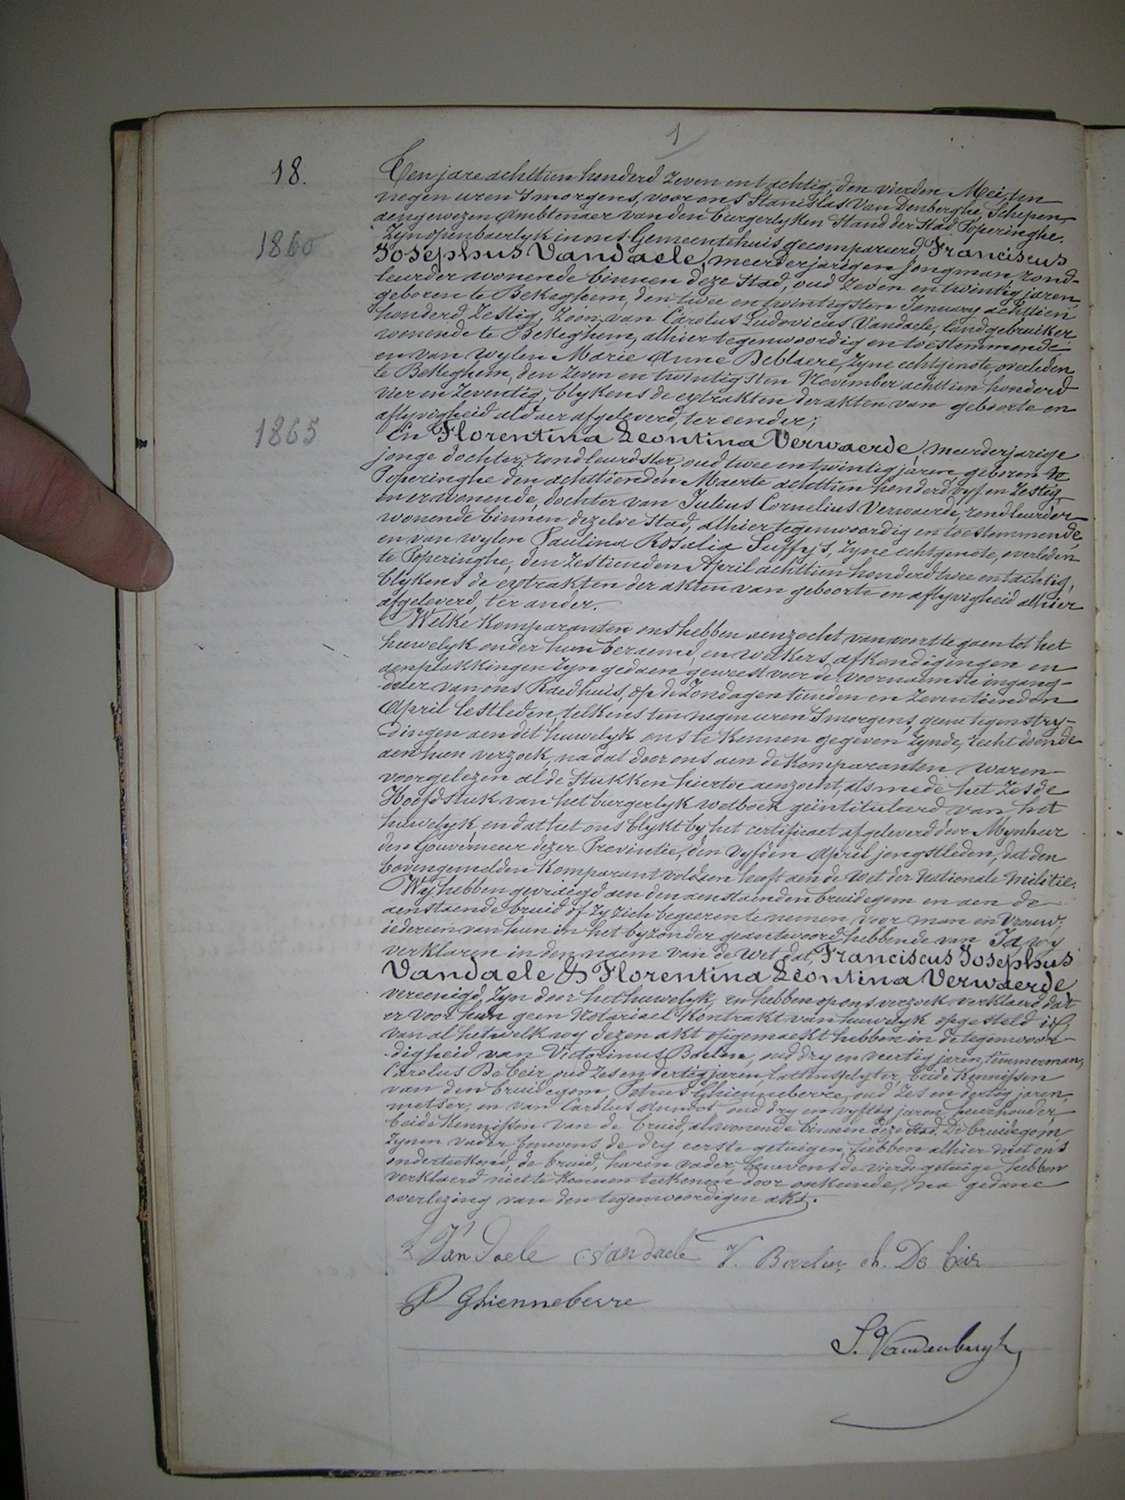 1
18.
Ten jare achttien honderd zeven en tachtig, den vierden Mei, ten
negen uren 's morgens, voor ons Stanislas Van Denberghe, Schepen
aengewezen Ambtenaer van den burgerlyken Stand der Stad Poperinghe.
1860
Zyn openbaerlyk in ons Gemeentehuis gecompareerd Franciscus
Josephus Vandaele, meerderjarigen jongman, rond-
leurder wonende binnen deze Stad, oud zeven en twintig jaren,
geboren te Bekeghem, den twee en twintigsten January achttien
honderd zestig, zoon van Carolus Ludovicus Vandaele, landgebruiker
wonende te Bekeghem, alhier tegenwoordig en toestemmende
en van wylen Marie Anne Deblaere, zyne echtgenote, overleden
te Bekeghem, den zeven en twintigsten November achttien honderd
vier en zeventig, blykens de extrakten der akten van geboorte en
aflyvigheid aldaer afgeleverd, ter eender;
1865
En Florentina Leontina Verwaerde, meerderjarige
jonge dochter, rondleurdster, oud twee en twintig jaren, geboren te
Poperinghe den achttienden Maerte achttien honderd vyf en zestig,
en er wonende, dochter van Julius Cornelius Verwaerde, rondleurder
wonende binnen dezelve Stad, alhier tegenwoordig en toestemmende,
en van wylen Paulina Rosalia Suffys, zyne echtgenote, overleden
te Poperinghe, den zestienden April achttien honderd twee en tachtig,
blykens de extrakten der akten van geboorte en aflyvigheid alhier
afgeleverd, ter ander.
Welke komparanten ons hebben aenzocht van voort te gaen tot het
huwelyk onder hun beraemd, en welkers afkondigingen en
aenplakkingen zyn gedaen geweest voor de voornaemste ingang-
deur van ons Raedhuis, op de zondagen tienden en zeventienden
April lestleden, telkens ten negen uren 's morgens, geene tegenstry-
dingen aen dit huwelyk ons te kennen gegeven zynde, recht doende
aen hun verzoek, na dat door ons aen de komparanten waren
voorgelezen al de Stukken hiertoe aenzocht, als mede het Zesde
Hoofdstuk van het burgerlyk wetboek geïntituleerd van het
huwelyk en dat het ons blykt by het certificaet afgeleverd door Mynheer
den Gouverneur dezer Provintie, den vyfden April jongstleden, dat den
bovengemelden komparant voldaen heeft aen de Wet der Nationale Militie.
Wij hebben gevraegd aen den aenstaenden bruidegom en aen de
aenstaende bruid of zy zich begeeren te nemen voor man en vrouw,
iedereen van hun in het byzonder geantwoord hebbende van Ja, wy
verklaren in den naem van de Wet dat, Franciscus Josephus
Vandaele & Florentina Leontina Verwaerde,
vereenigd zyn door het huwelyk, en hebben op ons verzoek verklaerd dat
er voor hun geen Notariael kontrakt van huwelyk opgesteld is,
van al hetwelk wy dezen akt opgemaekt hebben in de tegenwoor-
digheid van Victorinus Baelen, oud dry en veertig jaren, timmerman,
Carolus De Ceir, oud zes en dertig jaren, beide kennissen
van den bruidegom, Petrus Ghienneberre, oud zes en dertig jaren,
metser, en van Carolus oud dry en vyftig jaren, peerhouder
beide kennissen van de bruid, al wonende binnen deze Stad. De bruidegom
zynen vader, benevens de dry eerste getuigen hebben alhier met ons
onderteekend, de bruid, haren vader, benevens de vierde getuige hebben
verklaerd niet te konnen teekenen door onkunde, na gedane
overlezing van den tegenwoordigen akt.
Van Daele C. Van daele V. Baelen ch. De Ceir
P Ghienneberre
S. Vandenberghe